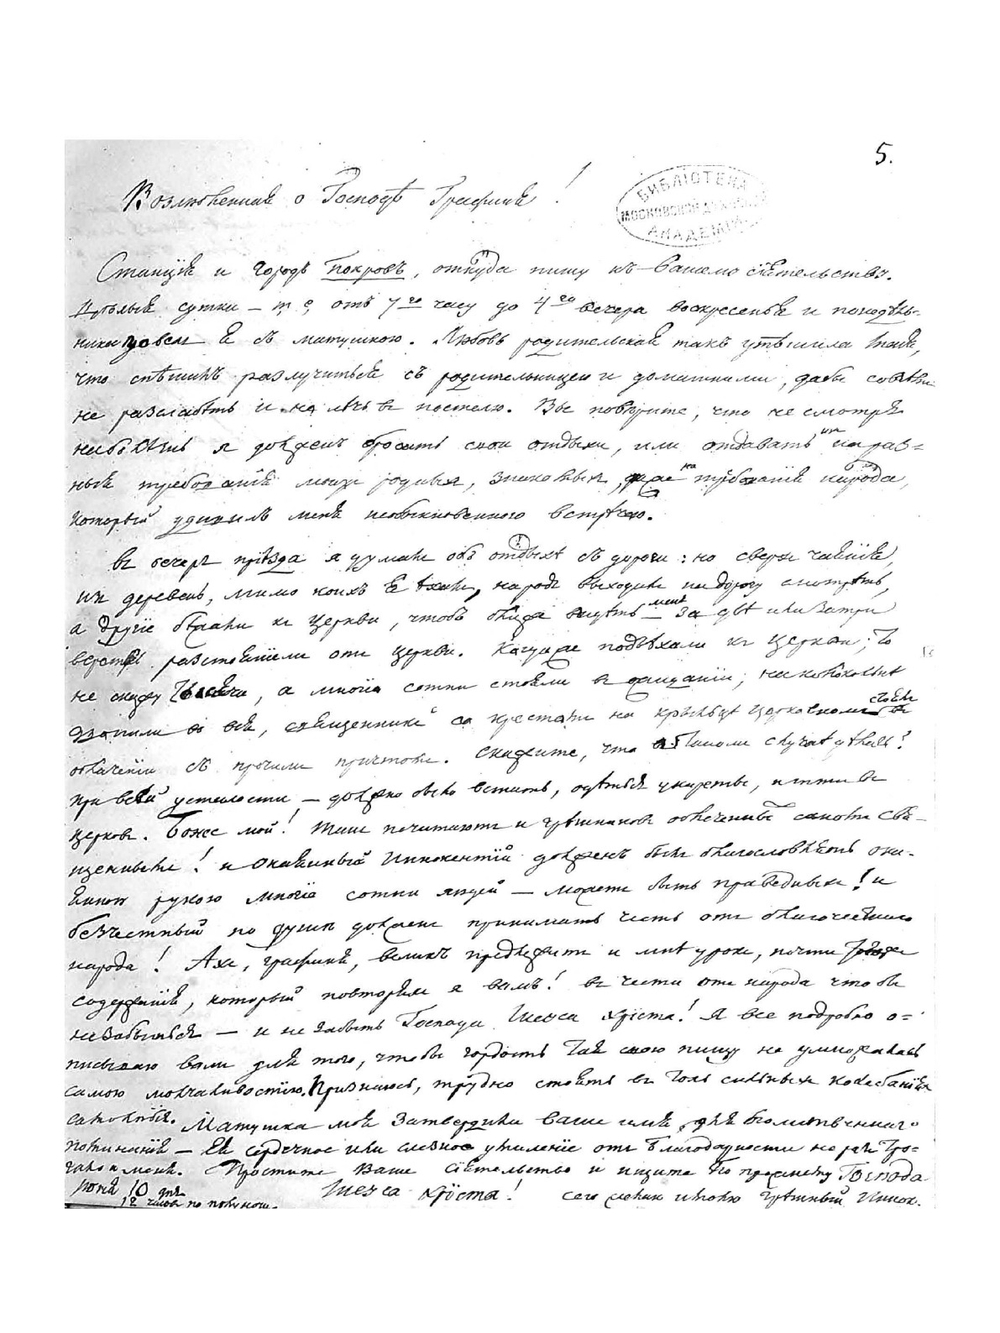 5.
БИБЛІОТЕКА
МОСКОВСКОЙ ДУХОВНОЙ
АКАДЕМІИ
Возлюбленная о Господѣ Графиня!
Станція и городъ Покровъ, откуда пишу къ Вашему сіятельству.
Цѣлыя сутки – т. е. отъ 7го часу до 4го вечера воскресенья и понедѣль-
ника провелъ я съ матушкою. Любовь родительская такъ утѣшила меня,
что спѣшилъ разлучиться съ родительницею и домашними, дабы совсѣмъ
не разслабѣть и не лечь в постелю. Вы повѣрите, что не смотря
на болѣзнь я долженъ бросить свои отдыхи, или отдавать ихъ на раз-
ныя требованія моихъ родных, знакомых, даже на требованія народа,
который удивилъ меня необыкновенною встрѣчею.
въ вечеръ пріѣзда я думалъ объ отдыхѣ съ дороги: но сверхъ чаянія,
изъ деревень, мимо коихъ я ѣхалъ, народъ выходилъ на дорогу смотрѣть,
а другіе бѣжали къ церкви, чтобъ видѣть меня за двѣ или за три
версты разстояніемъ отъ церкви. Когда же подъѣхали къ церкви; то
не скажу тысячи, а многія сотни стояли в ожиданіи; на колокольнѣ
звонили во вся, священники со крестами на крыльцѣ церковномъ в
облаченіи съ прочимъ причтомъ. Скажите, что в такомъ случаѣ дѣлать?
при всей усталости – должно было встать, одѣться у кареты, и итти въ
церковь. Боже мой! такъ почитаютъ и грѣшников облеченныхъ саномъ свя-
щенным! и окаянный Иннокентій долженъ былъ благословлять ока-
янною рукою многія сотни людей – можетъ быть праведных! и
безчестный по душѣ долженъ принимать честь отъ благочестиваго
народа! Ахъ, графиня, великъ предлежитъ и мнѣ урокъ, почти того же
содержанія, который повторялъ я вамъ! въ чести отъ народа чтобы
не забыться – и не забыть Господа Іисуса Хріста! Я все подробно о-
писываю вамъ для того, чтобы гордость тайною пищу не умножалась
самою молчаливостію. Признаюсь, трудно стоять въ толь сильных колебаніях
Матушка моя затвердила ваше имя для всегдашняго
поминанія – Ея сердечное или слезное умиленіе отъ благодарности не разъ тро-
гало и меня. Простите Ваше Сіятельство и ищите по прежнему Господа
Іисуса Хріста! сего желаю грѣшный Иннок.
Іюня 10 дня
12 часа по полуноч.